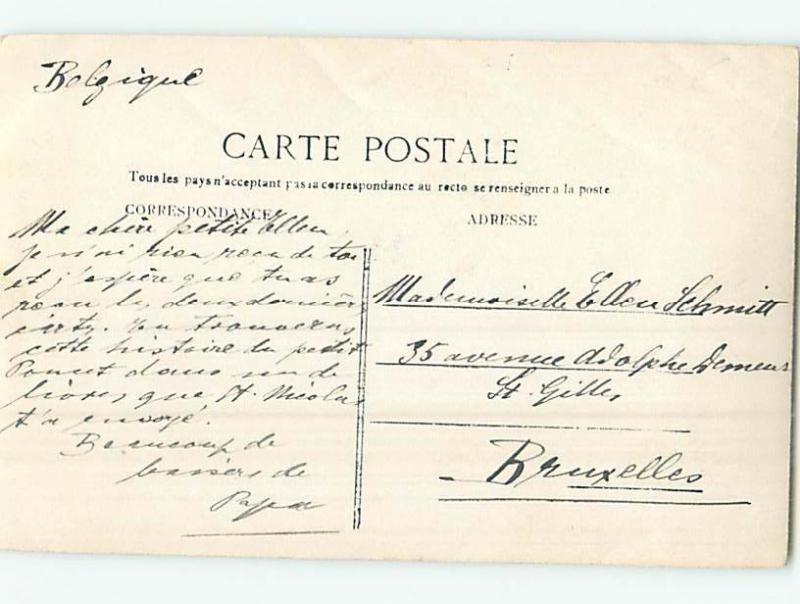 Belgique
CARTE POSTALE
Tous les pays n'acceptant pas la correspondance au recto se renseigner a la poste
CORRESPONDANCE
ADRESSE
Ma chère petite Ellen,
Je n'ai rien recu de toi
et j'espère que tu as
recu les deux dernières
carty. Tu trouveras
cette histoire du petit
Poucet dans un de
livres que St. Nicolas
t'a envoyé.
Beaucoup de
baisers de
Papa
Mademoiselle Ellen Schmitt
35 avenue Adolphe Demeur
St. Gilles
Bruxelles